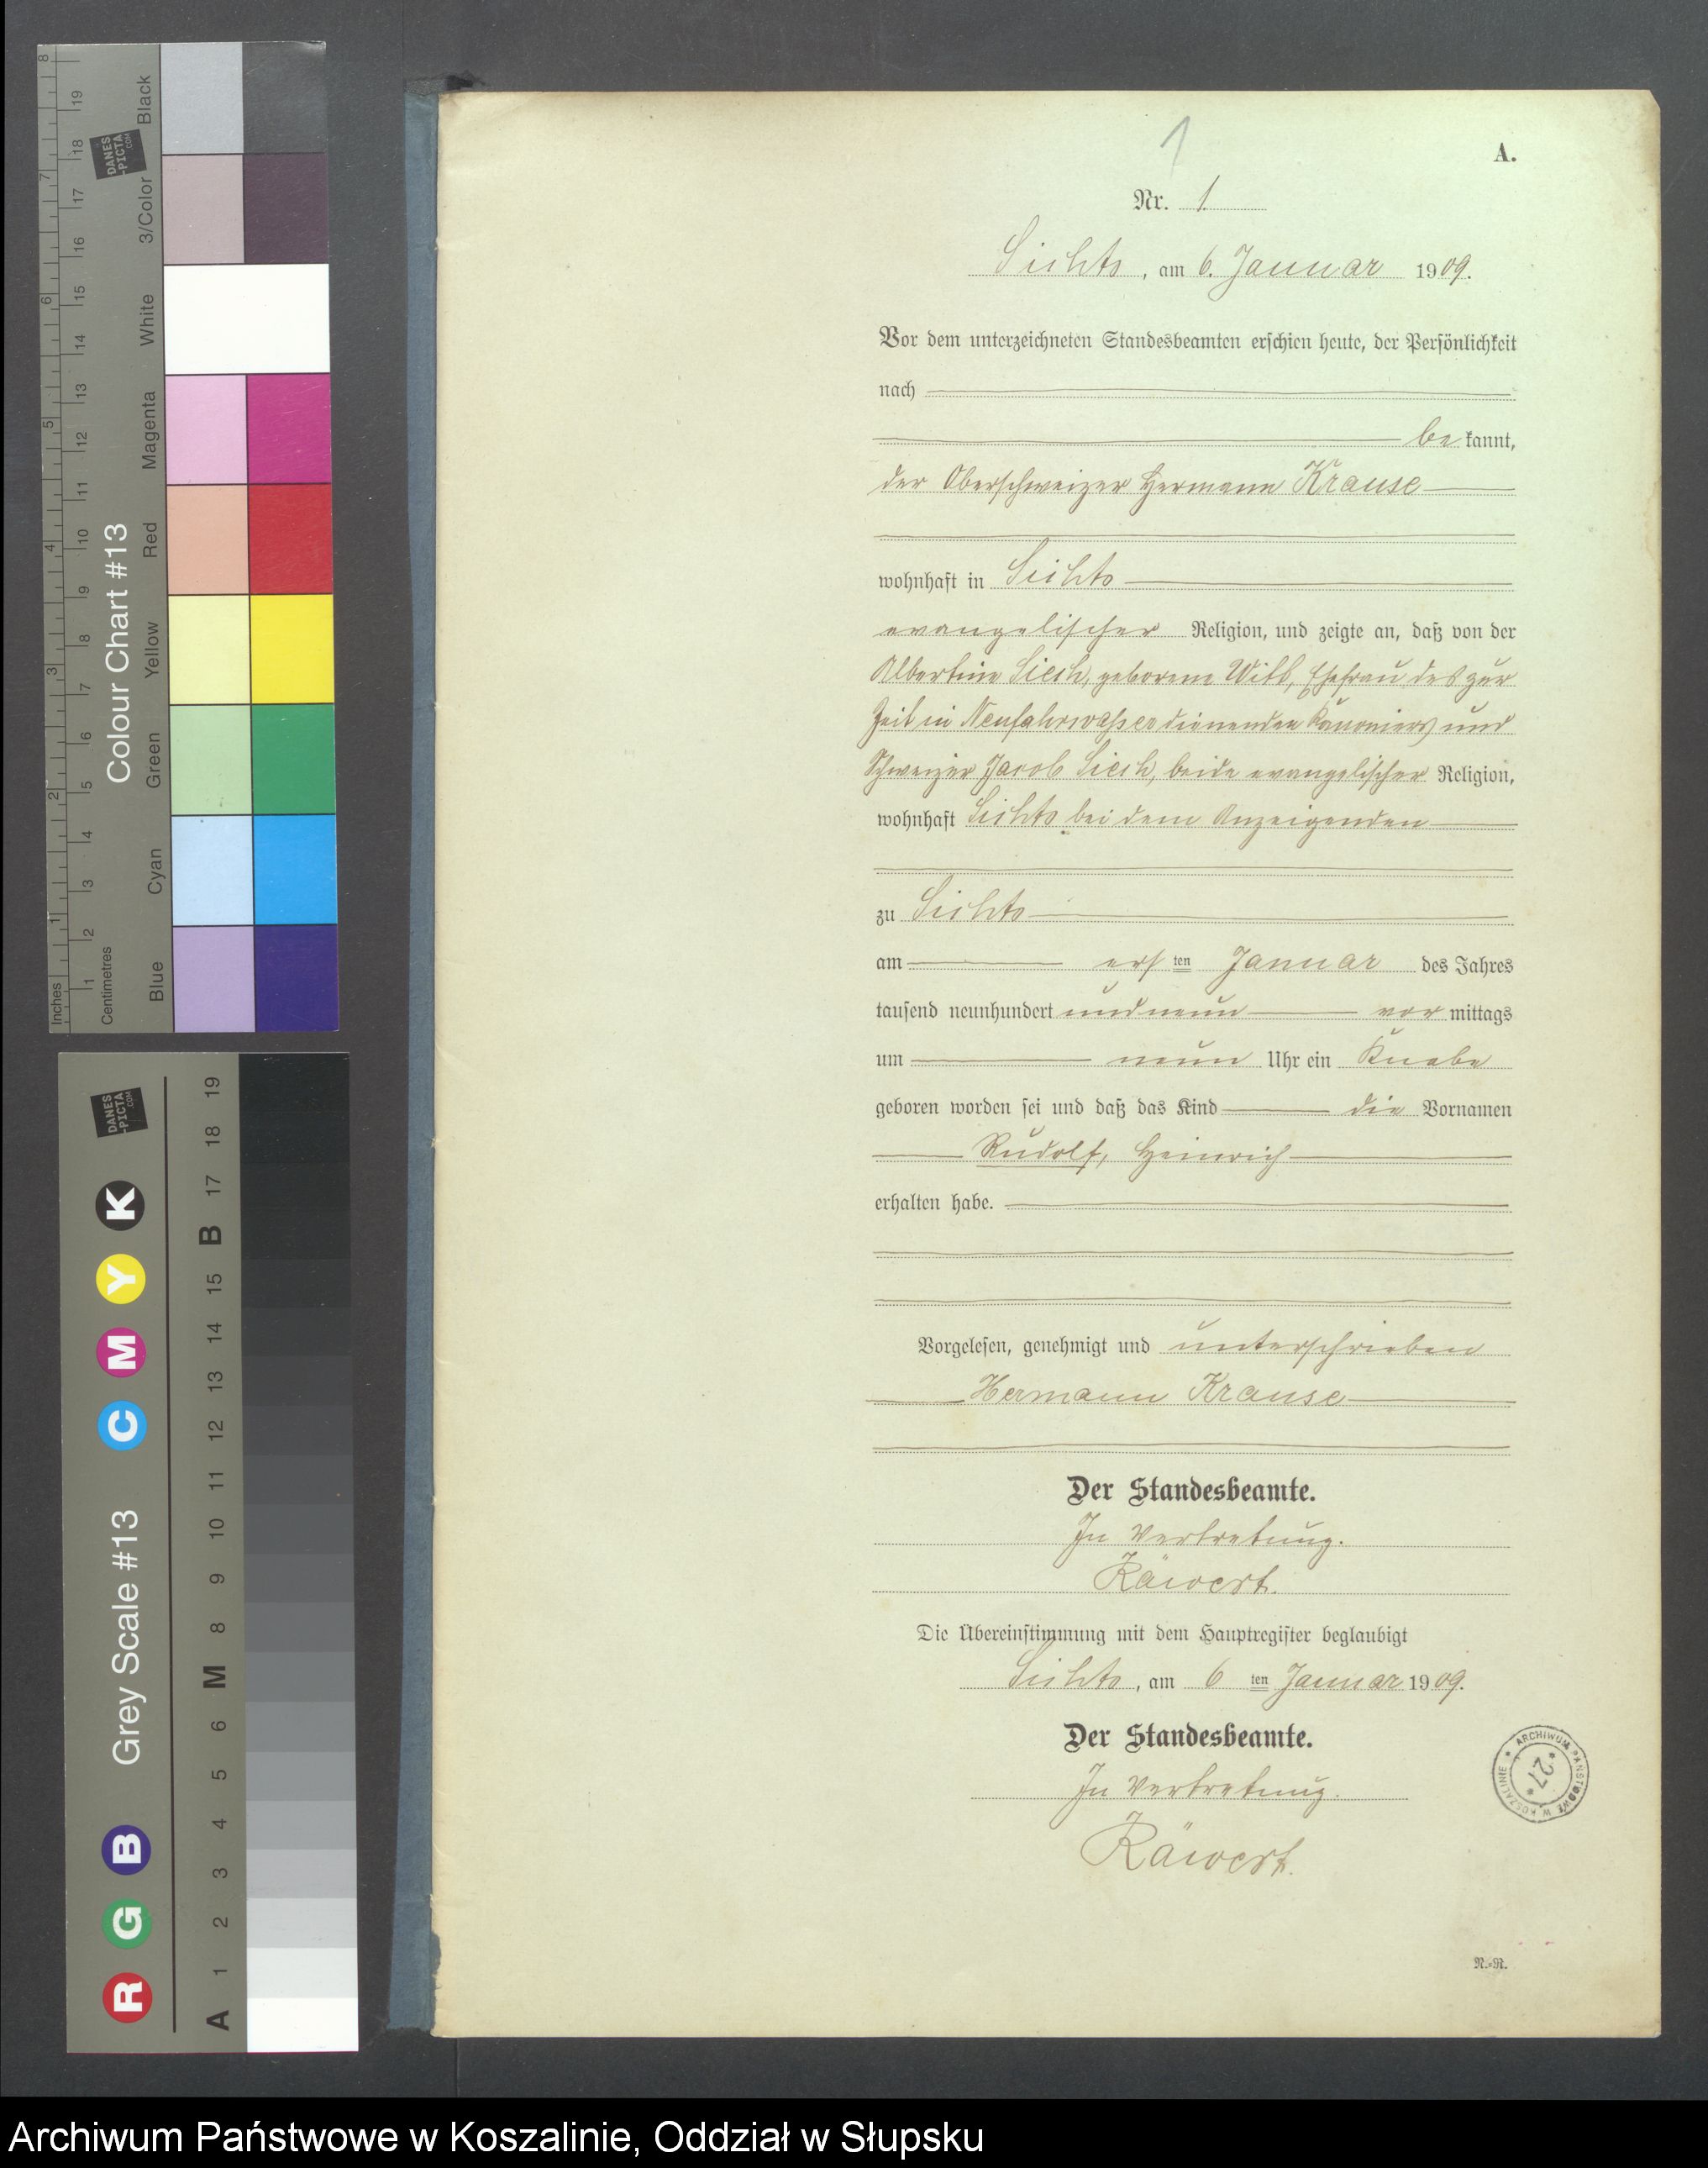 1
A.
Nr. 1.
Sichts, am 6. Januar 1909.
Vor dem unterzeichneten Standesbeamten erschien heute, der Persönlichkeit
nach
be kannt,
der Oberschweizer Hermann Krause
wohnhaft in Sichts
evangelischer Religion, und zeigte an, daß von der
Albertine geborene Witt, Ehefrau des zur
Zeit in Neufahrwasser dienenden Kanoniers und
Schweizer Jacob beide evangelischer Religion,
wohnhaft Sichts bei dem Anzeigenden
zu Sichts
am ersten Januar des Jahres
tausend neunhundert undneun vormittags
um neun Uhr ein Knabe
geboren worden sei und daß das Kind die Vornamen
Rudolf, Heinrich
erhalten habe.
Vorgelesen, genehmigt und unterschrieben
Hermann Krause
Der Standesbeamte.
In Vertretung.
Räwert.
Die Übereinstimmung mit dem Hauptregister beglaubigt
Sichts, am 6 ten Januar 1909.
Der Standesbeamte.
In Vertretung.
Räwert.
ARCHIWUM PAŃSTWOWE W KOSZALINIE
*27*
N.=R.
Colour Chart #13
Black
3/Color
White
Magenta
Red
Yellow
Green
Cyan
Blue
Inches 1 2 3 4 5 6 7 8
Centimetres 1 2 3 4 5 6 7 8 9 10 11 12 13 14 15 16 17 18 19
DANES-PICTA.COM
Grey Scale #13
R G B C M Y K
A 1 2 3 4 5 6 M 8 9 10 11 12 13 14 15 B 17 18 19
DANES-PICTA.COM
Archiwum Państwowe w Koszalinie, Oddział w Słupsku